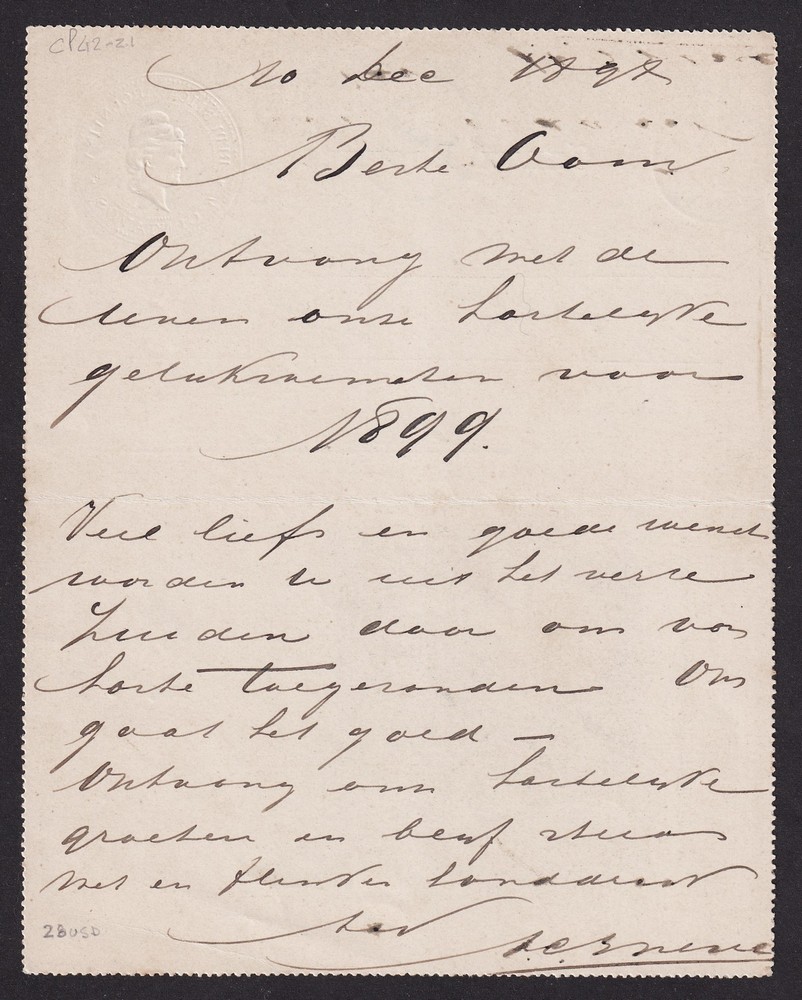 CP42-21
10 Dec 1898
Beste Oom
Ontvang met de
leven onze hartelijke
gelukwenschen voor
1899.
Veel liefs en goede wensch
worden u uit het verre
Zuiden door ons van
harte toegezonden Ons
gaat het goed –
Ontvang onze hartelijke
groeten en beleef steeds
met en flinken handdruk
28USD